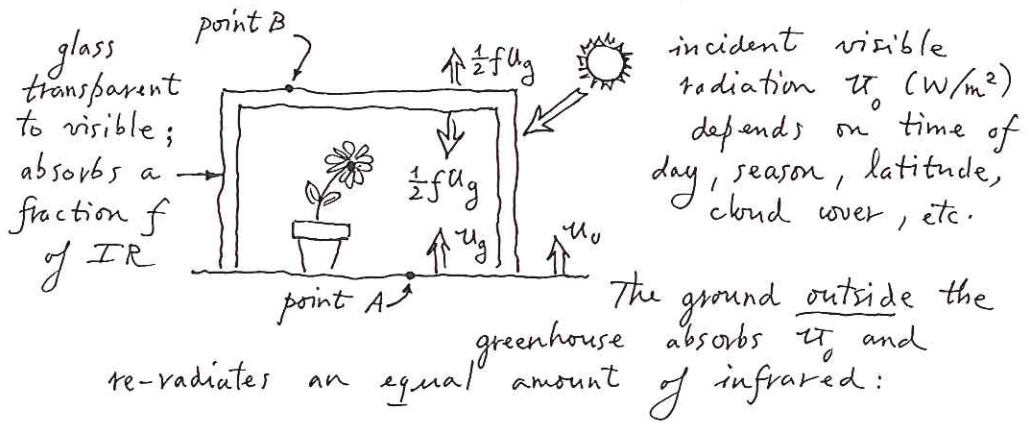 point B
glass
transparent
to visible;
absorbs a
fraction f
of IR
½fUg
½fUg
ug
u₀
point A
incident visible
radiation U₀ (W/m²)
depends on time of
day, season, latitude,
cloud cover, etc.
The ground outside the
greenhouse absorbs U₀ and
re-radiates an equal amount of infrared: